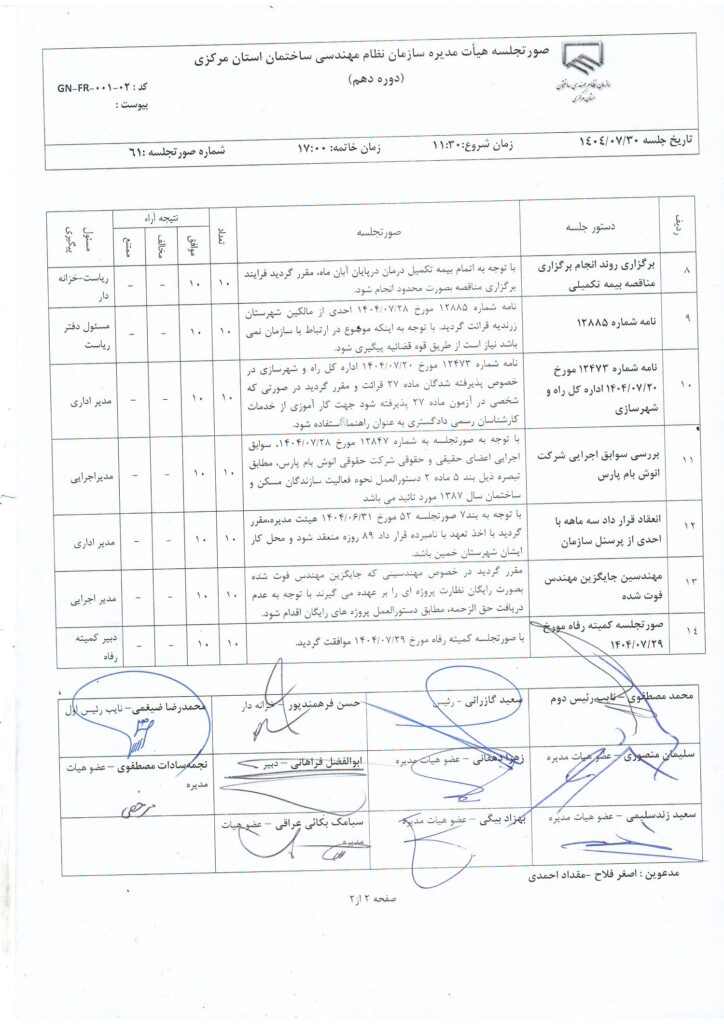 صورتجلسه هیأت مدیره سازمان نظام مهندسی ساختمان استان مرکزی
(دوره دهم)
سازمان نظام مهندسی ساختمان
استان مرکزی
کد : GN-FR-۰۰۱-۰۲
پیوست :
تاریخ جلسه ۱۴۰۴/۰۷/۳۰
زمان شروع:۱۱:۳۰
زمان خاتمه: ۱۷:۰۰
شماره صورتجلسه :۶۱
ردیف
دستور جلسه
صورتجلسه
تعداد
نتیجه آراء
موافق
مخالف
ممتنع
مسئول پیگیری
۸
برگزاری روند انجام برگزاری
مناقصه بیمه تکمیلی
با توجه به اتمام بیمه تکمیل درمان درپایان آبان ماه، مقرر گردید فرایند
برگزاری مناقصه بصورت محدود انجام شود.
۱۰
۱۰
–
–
ریاست-خزانه
دار
۹
نامه شماره ۱۲۸۸۵
نامه شماره ۱۲۸۸۵ مورخ ۱۴۰۴/۰۷/۲۸ احدی از مالکین شهرستان
زرندیه قرائت گردید. با توجه به اینکه موضوع در ارتباط با سازمان نمی
باشد نیاز است از طریق قوه قضائیه پیگیری شود.
۱۰
۱۰
–
–
مسئول دفتر
ریاست
۱۰
نامه شماره ۱۲۴۷۳ مورخ
۱۴۰۴/۰۷/۲۰ اداره کل راه و
شهرسازی
نامه شماره ۱۲۴۷۳ مورخ ۱۴۰۴/۰۷/۲۰ اداره کل راه و شهرسازی در
خصوص پذیرفته شدگان ماده ۲۷ قرائت و مقرر گردید در صورتی که
شخصی در آزمون ماده ۲۷ پذیرفته شود جهت کار آموزی از خدمات
کارشناسان رسمی دادگستری به عنوان راهنما استفاده شود.
۱۰
۱۰
–
–
مدیر اداری
۱۱
بررسی سوابق اجرایی شرکت
انوش بام پارس
با توجه به صورتجلسه به شماره ۱۲۸۴۷ مورخ ۱۴۰۴/۰۷/۲۸، سوابق
اجرایی اعضای حقیقی و حقوقی شرکت حقوقی انوش بام پارس، مطابق
تبصره ذیل بند ۵ ماده ۲ دستورالعمل نحوه فعالیت سازندگان مسکن و
ساختمان سال ۱۳۸۷ مورد تائید می باشد
۱۰
۱۰
–
–
مدیراجرایی
۱۲
انعقاد قرار داد سه ماهه با
احدی از پرسنل سازمان
با توجه به بند۷ صورتجلسه ۵۲ مورخ ۱۴۰۴/۰۶/۳۱ هیئت مدیره،مقرر
گردید با اخذ تعهد با نامبرده قرار داد ۸۹ روزه منعقد شود و محل کار
ایشان شهرستان خمین باشد.
۱۰
۱۰
–
–
مدیر اداری
۱۳
مهندسین جایگزین مهندس
فوت شده
مقرر گردید در خصوص مهندسینی که جایگزین مهندس فوت شده
بصورت رایگان نظارت پروژه ای را بر عهده می گیرند با توجه به عدم
دریافت حق الزحمه، مطابق دستورالعمل پروژه های رایگان اقدام شود.
۱۰
۱۰
–
–
مدیر اجرایی
۱۴
صورتجلسه کمیته رفاه مورخ
۱۴۰۴/۰۷/۲۹
با صورتجلسه کمیته رفاه مورخ ۱۴۰۴/۰۷/۲۹ موافقت گردید.
۱۰
۱۰
–
–
دبیر کمیته
رفاه
محمد مصطفوی – نایب رئیس دوم
سعید گازرانی - رئیس
حسن فرهمندپور – خزانه دار
محمدرضا ضیغمی – نایب رئیس اول
سلیمان منصوری – عضو هیات مدیره
زهرا دهقانی – عضو هیات مدیره
ابوالفضل فراهانی – دبیر
نجمه‌سادات مصطفوی – عضو هیات
مدیره
مرخصی
سعید زندسلیمی – عضو هیات مدیره
بهزاد بیگی – عضو هیات مدیره
سیامک بکائی عراقی – عضو هیات
مدیره
مدعوین : اصغر فلاح -مقداد احمدی
صفحه ۲ از۲